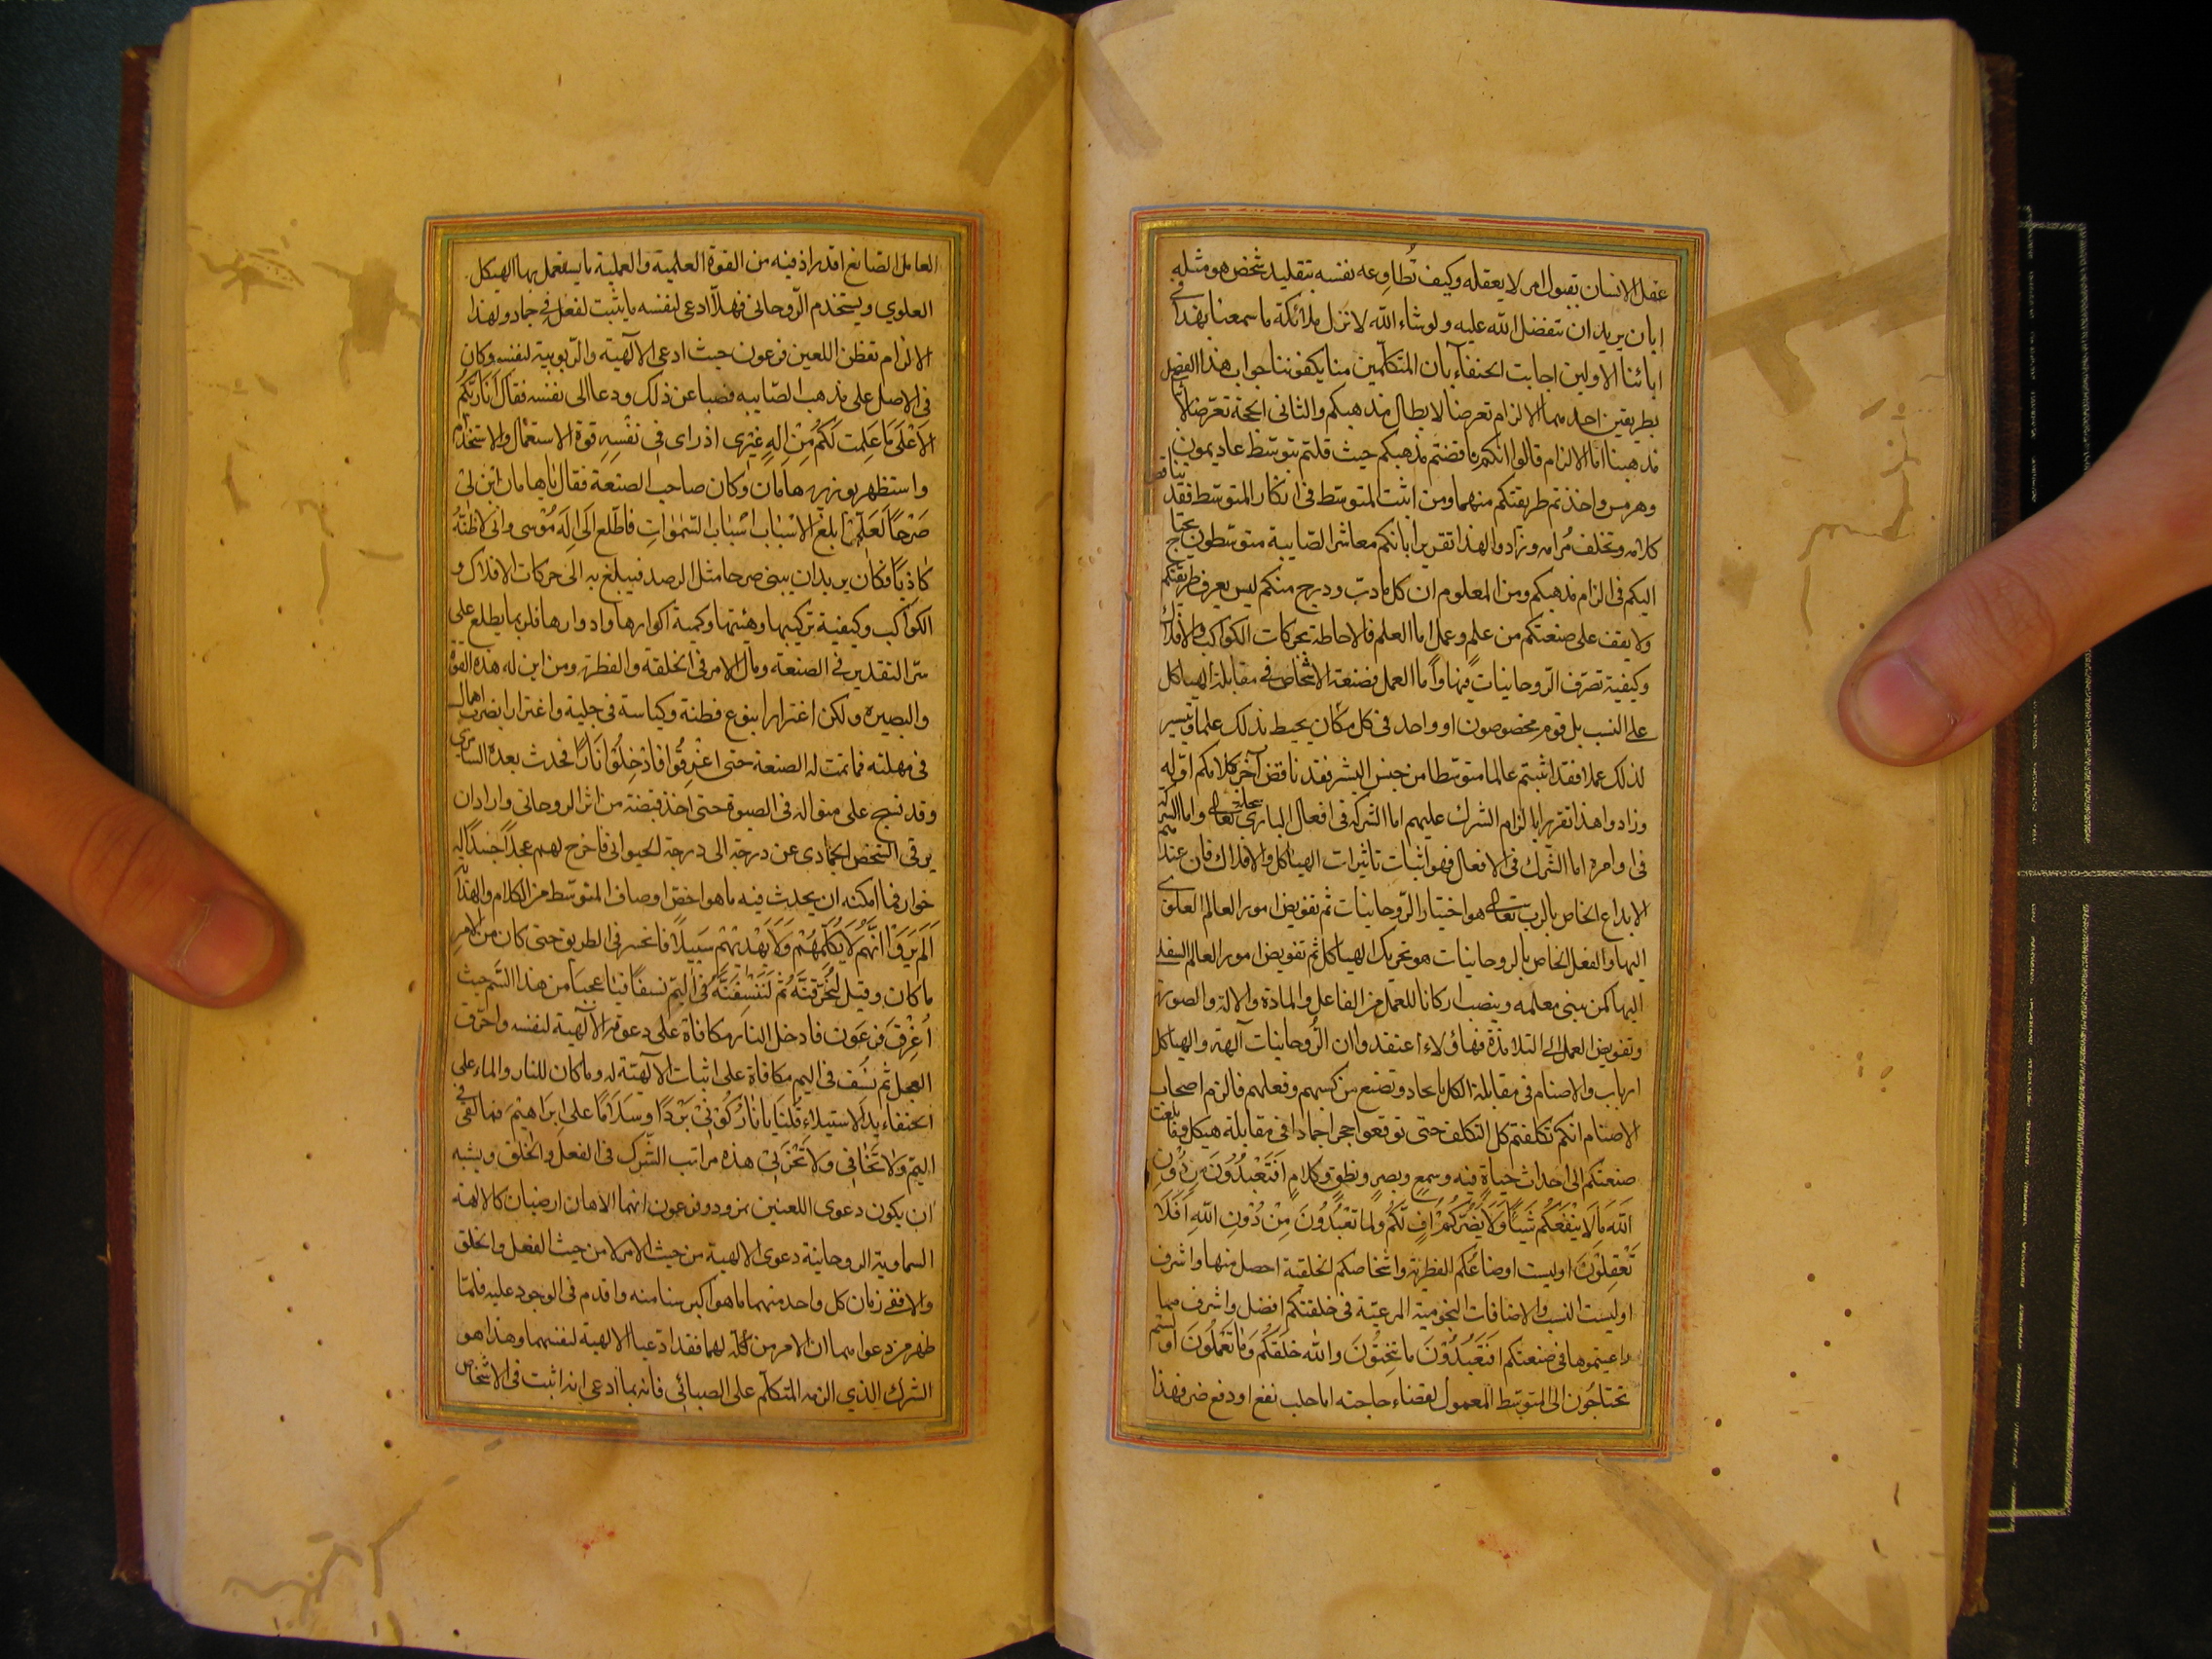 عقل الانسان بقبول امر لا يعقله وكيف تُطاوِعه نفسه بتقليد شخص هو مثله
ابان يريد ان يتفضل الله عليه ولو شاء الله لانزل ملائكة ما سمعنا بهذا في
ابائنا الاولين اجابت الحنفآء بان المتكلّمين منا يكفوننا جواب هذا الفصل
بطريقين احدهما الالزام تعرضا لابطال مذهبكم والثانى الحجة تعرّضا
مذهبنا اما الالزام قالوا انكم ناقضتم مذهبكم حيث قلتم بتوسّط عاديمون
وهرمس واخذتم طريقتكم منهما ومن اثبت المتوسّط فى انكار المتوسّط فقد تناقض
كلامه وتخلف مُرامه وزادوا لهذا تقريرا بانكم معاشر الصّابية متوسّطون يحتاج
اليكم فى الزام مذهبكم ومن المعلوم ان كل مادبّ ودرج منكم ليس يعرف طريقتكم
ولا يقف على صنعتكم من علم وعمل اما العلم فالاحاطة بحركات الكواكب والافلاك
وكيفية تصرّف الرّوحانيات فيها واما العمل فصنعة الاشخاص فى مقابلة الهياكل
على النسب بل قوم مخصوصون او واحد فى كل مكان يحيط بذلك علما وتيسر
لذلك عملا فقد اثبتم عالما متوسّطا من جنس البشر فقد ناقض آخر كلامكم اوله
وزادوا هذا تقريرا بالزام الشرك عليهم اما الشركة فى افعال البارى تعالى واما الشركة
فى اوامره اما الشّرك فى الافعال فهو اثبات تاثيرات الهياكل والافلاك فان عندهم
الابداع الخاص بالرب تعالى هو اختيار الرّوحانيات ثم تفويض امور العالم العلوى
اليها والفعل الخاص بالروحانيات هو تحريك الهياكل ثم تفويض امور العالم السفلى
اليها كمن يبنى معلمه وينصب اركانا للعمل من الفاعل والمادة والالة والصورة
وتفويض العمل الى التلامذة فهاؤلاء اعتقدوا ان الرّوحانيات آلهة والهياكل
ارباب والاصنام فى مقابلة الكل باتحاد وتصنع من كسبهم وفعلهم فالزم اصحاب
الاصنام انكم تكلفتم كل التكلف حتى توقعوا حجرا جمادا فى مقابلة هيكل وما بلغت
صنعتكم الى احداث حياة فيه وسمع وبصر ونطق وكلام اَفَتَعْبُدُونَ مِنْ دُونِ
اللهِ مَا لَا يَنْفَعُكُم شَيْئًا وَلَا يَضُرُّكُمْ اُفٍ لَّكُمْ وَلِمَا تَعْبُدُونَ مِنْ دُونِ اللهِ اَفَلَا
تَعْقِلُوْنَ اوليست اوضاعكم الفطرية واشخاصكم الخلقية احصل منها واشرف
اوليست النسب والاضافات النجومية المرعيّة فى خلقتكم افضل واشرف مما
راعيتموها فى صنعتكم اَفَتَعْبُدُوْنَ ما تَنْحِتُوْنَ والله خَلَقَكُمْ وَمَا تَعْمَلُونَ او لستم
تحتاجون الى المتوسّط المعمول لقضاء حاجته اما جلب نفع او دفع ضر فهذا
العامل الصّانع اقدر اذ فيه من القوة العلمية والعملية ما يستعمل بها الهيكل
العلوي ويستخدم الرّوحانى فهلّا ادعى لنفسه ما يثبت لفعل فى جماد ولهذا
الالزام تفطن اللعين فرعون حيث ادعى الالٓهية والرّبوبية لنفسه وكان
فى الاصل على مذهب الصّايبه فصبا عن ذلك ودعا الى نفسه فقال اَنَا رَبُّكُمُ
الاَعْلى مَا عَلِمت لَكُمْ مِنْ اِلهٍ غَيْرِى اذ راى فى نفسِهِ قوة الاستعمال والاستخدام
واستظهر بوزيره هامَان وكان صاحب الصنعة فقال يَا هامان ابْنِ لى
صَرْحًا لَعَلِّىْ اَبلغُ الاَسْبَاب اَسْبَاب السّمٰوات فاَطّلع اِلى اِلَه مُوْسى وانى لاَظنّهُ
كاذِبًا فكان يريد ان يبنى صرحا مثل الرصد فيبلغ به الى حركات الافلاك و
الكواكب وكيفية تركيبها وهيئتها وكمية اكوارها وادوارها فلربما يطلع على
سرّ التقدير فى الصنعة ومآل الامر فى الخلقة والفطرة ومن اين له هذه القوة
والبصيره ولكن اغترارا بنوع فطنة وكياسة فى جبلية واغترارا بضرب اهمال
فى مهلته فما تمت له الصنعة حتى اغرقُوا فادْخِلُوْا نَارًا فحدث بعده السامرى
وقد نسج على منواله فى الصبوة حتى اخذ قبضة من اثر الروحانى واراد ان
يرقى الشخص الجمادى عن درجة الى درجة الحيوانى فاخرج لهم عجلاً جَسَدًا له
خوار فما امكنه ان يحدث فيه ما هو اخصّ اوصاف المتوسّط من الكلام والهداية
اَلَمْ يَرَوْا اَنَّهُ لَا يُكَلِّمُهُمْ وَلَا يَهْدِيْهِمْ سَبِيلًا فانحسر فى الطريق حتى كان من الامر
ما كان وقيل لَنُحَرِّقَنَّهُ ثُمَّ لَنَنْسِفَنَّهُ فى اليَمّ نسفًا فيا عجبا من هذا السّر حيث
اُغْرِقَ فرعون فادخل النار مكافاة على دعوته الالٓهية لنفسه واحرق
العجل ثم نسف فى اليم مكافاة على اثبات الالٓهيّة له وما كان للنار والماء على
الحنفاء يد الاستيلاء قُلْنَا يا نارُ كُوْنِىْ بَرْدًا وسَلَامًا على ابرَاهِيْم فالقيه فى
اليَمّ ولَا تَخَافِى ولَا تَحْزَنىْ هذه مراتب الشّرك فى الفعل والخلق ويشبه
ان يكون دعوى اللعينين نمرود وفرعون انهما الاهان ارضيان كالالهة
السماوية الروحانية دعوى الالهية من حيث الامر لا من حيث الفعل والخلق
والا ففى زمان كل واحد منهما ما هو اكبر سنا منه واقدم فى الوجود عليه فلمّا
ظهر من دعواهما ان الامر من كله لهما فقد ادعيا الالهية لنفسهما وهذا هو
الشرك الذي الزمه المتكلّم على الصبائى فانه بما ادعى انه اثبت فى الاشخاص